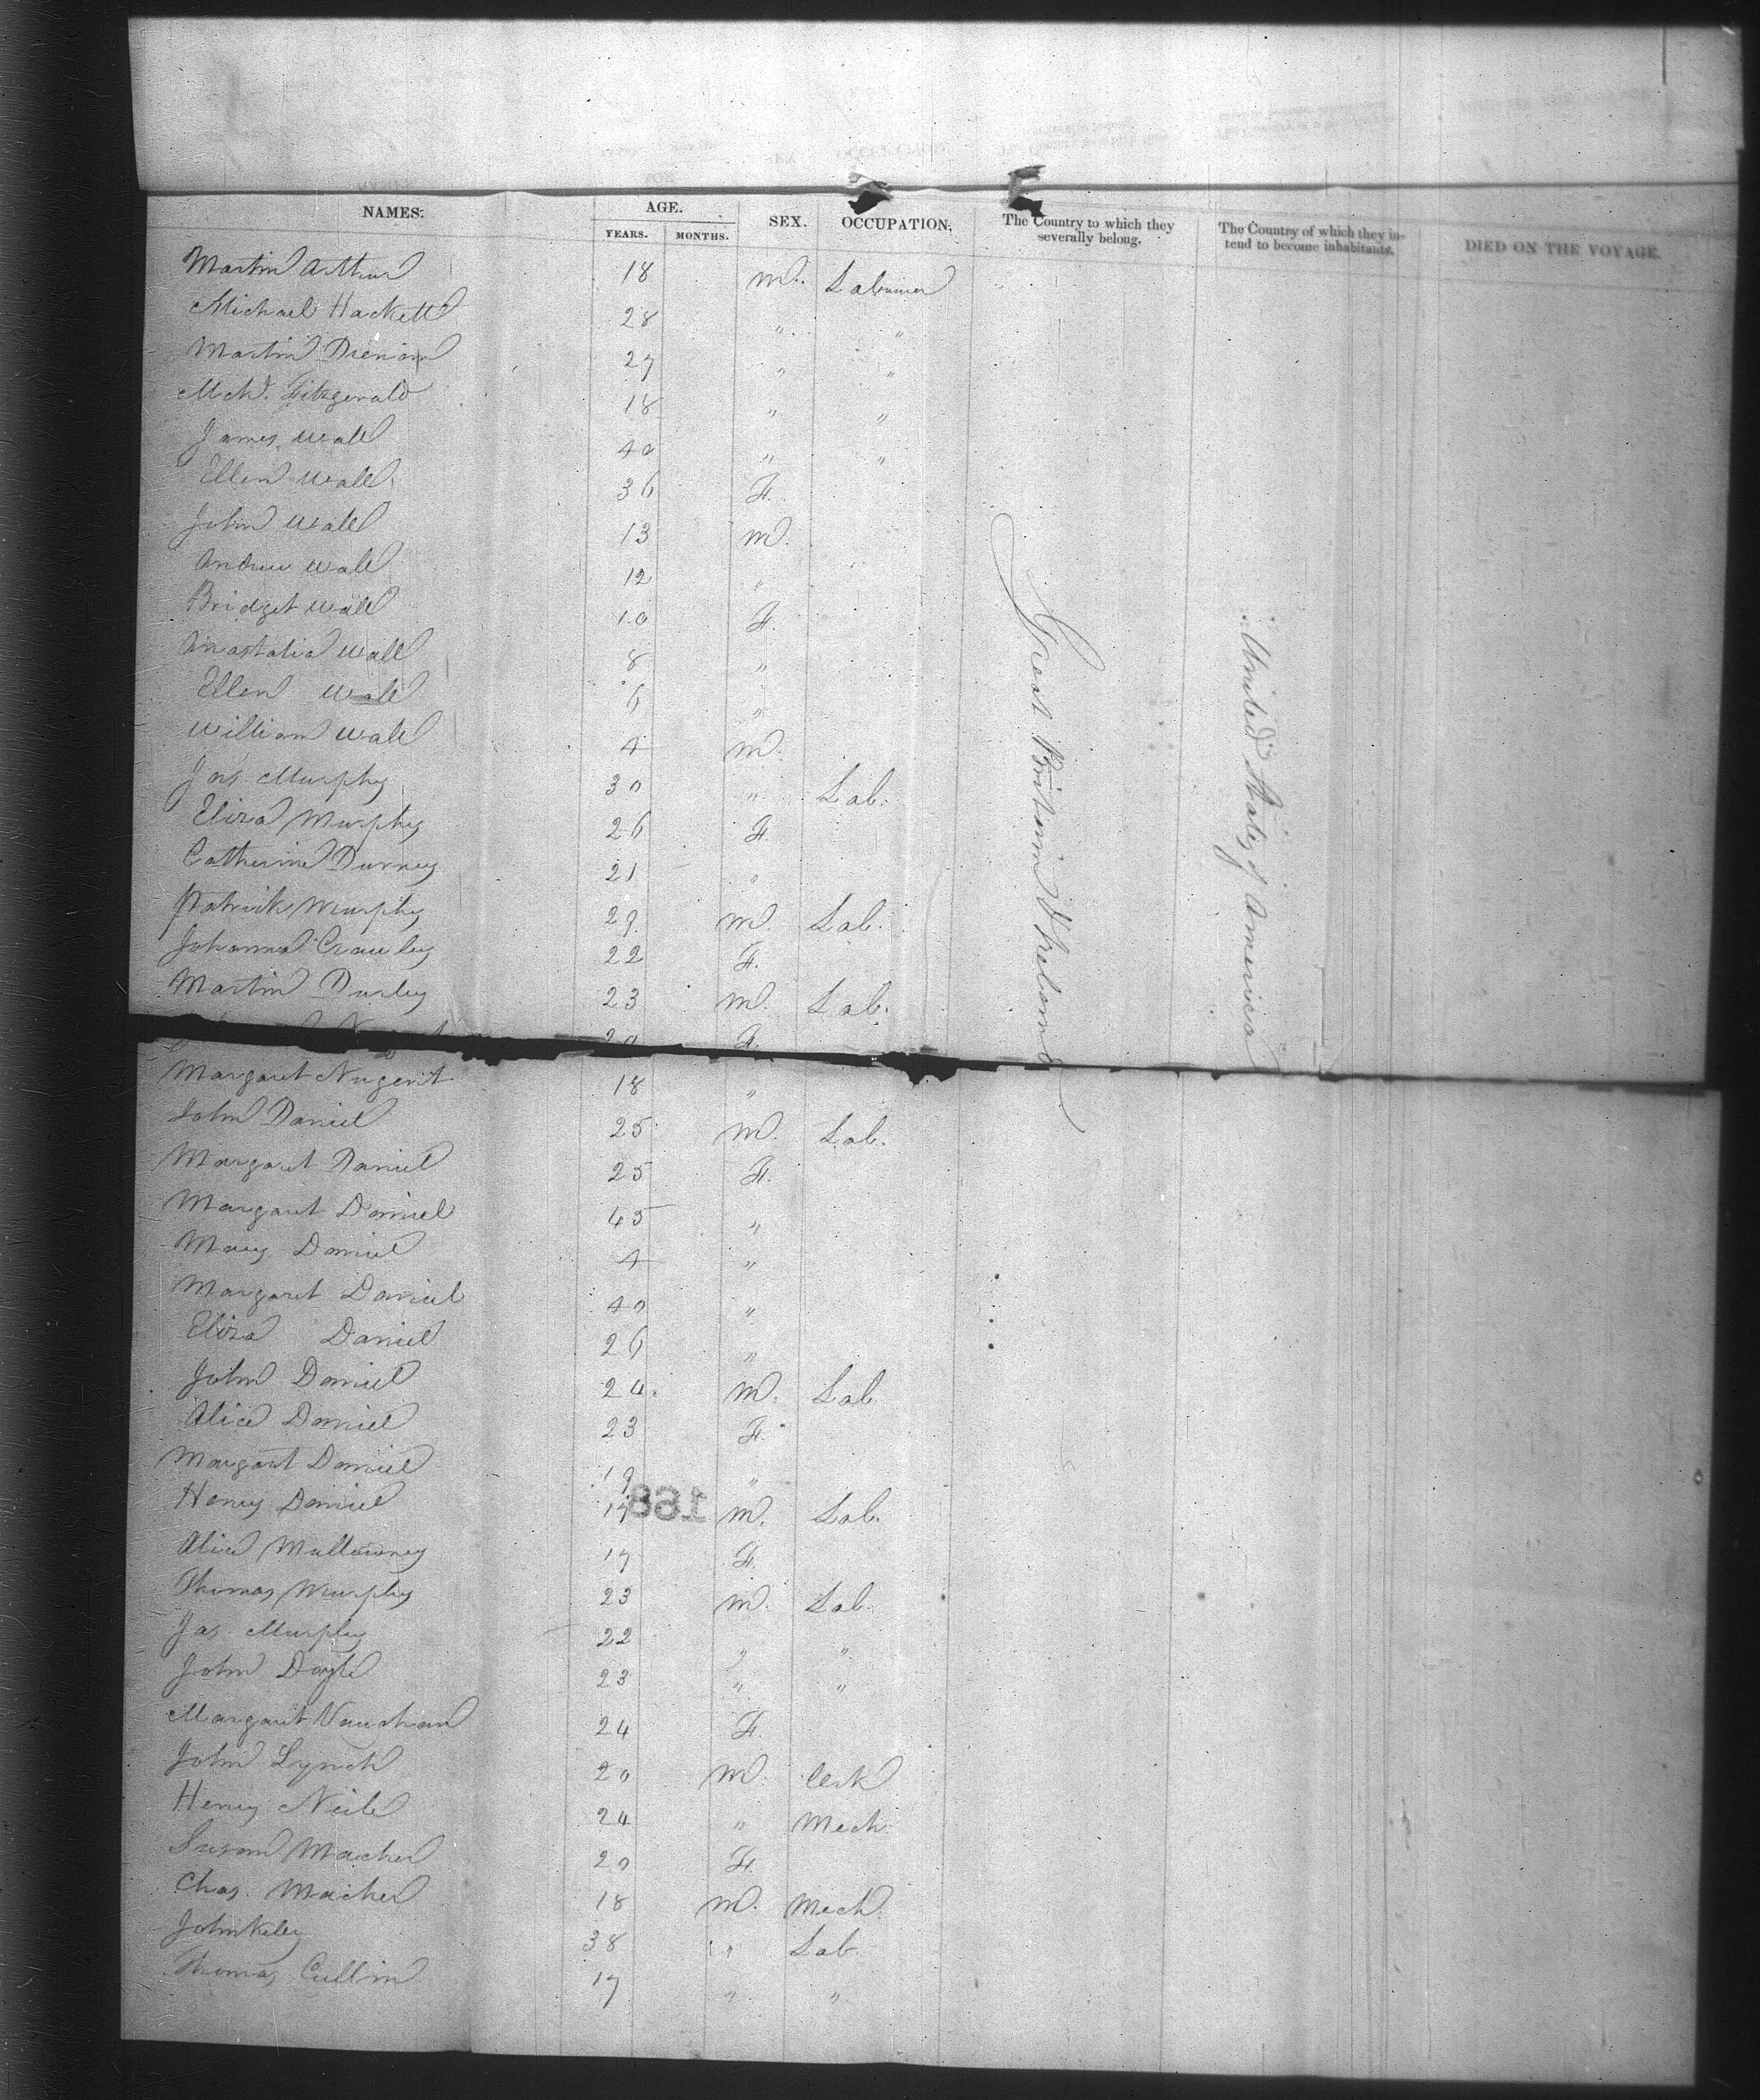 NAMES. AGE. SEX. OCCUPATION. The Country to which they severally belong. The Country of which they intend to become inhabitants. DIED ON THE VOYAGE.
YEARS. MONTHS.
Martin Arthur 18 M. Labourer
Michael Hackett 28 " "
Martin 27 " "
Mchl. Fitzgerald 18 " "
James Wall 40 " "
Ellen Wall 36 F.
John Wall 13 M.
Andrew Wall 12 "
Bridget Wall 10 F.
Anastatia Wall 8 "
Ellen Wall 6 "
William Wall 4 M.
Jas. Murphy 30 " Lab.
Eliza Murphy 26 F.
Catherine Durney 21 "
Patrick Murphy 29 M. Lab.
Johanna Crawley 22 F.
Martin Durley 23 M. Lab.
20 F.
Margaret Nugent 18 "
John Daniel 25 M. Lab.
Margaret Daniel 25 F.
Margaret Daniel 45 "
Mary Daniel 4 "
Margaret Daniel 40 "
Eliza Daniel 26 "
John Daniel 24. M. Lab
Alice Daniel 23 F.
Margaret Daniel 19 "
Henry Daniel 17 M. Lab.
Alice Mullowney 17 F.
Thomas Murphy 23 M. Lab.
Jas. Murphy 22 " "
John Doyle 23 " "
Margaret Vaughan 24 F.
John Lynch 20 M. Clerk
Henry Neile 24 " Mech.
Susan Macher 20 F.
Chas. Macher 18 M. Mech.
John Keley 38 " Lab
Thomas Cullin 17 " "
Great Britain & Ireland
United States of America
168